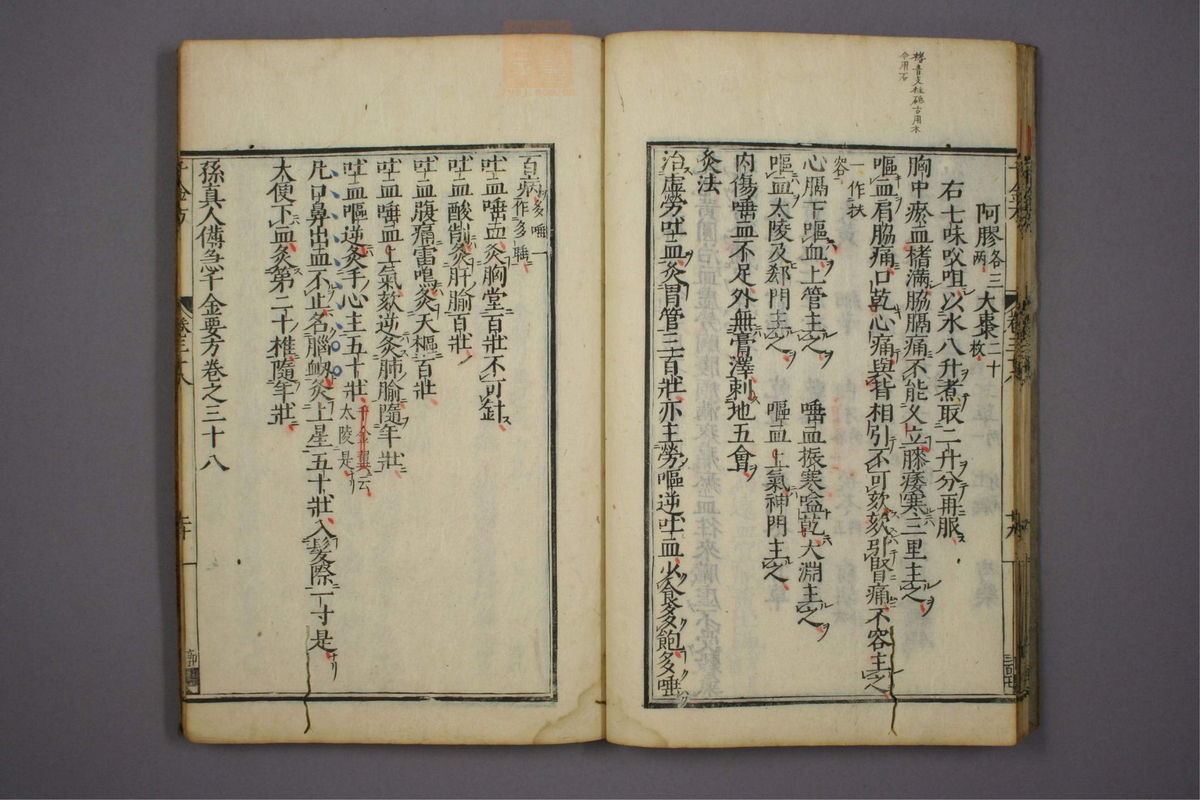 阿膠各三兩大棗二十枚
右七味㕮咀以水八升煮取二升分再服
胸中瘀血榰滿脇膈痛不能久立膝痿寒三里主之
嘔血肩脇痛口乾心痛與背相引不可欬欬引腎痛不容主之
一作扶容
心膈下嘔血上管主之　唾血振寒嗌乾太淵主之
嘔血太陵及郄門主之　嘔血上氣神門主之
内傷唾血不足外無膏澤刺地五會
灸法
治虛勞吐血灸胃管三百壯亦主勞嘔逆吐血少食多飽多唾
百病一作多唾多睡
吐血唾血灸胸堂百壯不可針
吐血酸削灸肝腧百壯
吐血腹痛雷鳴灸天樞百壯
吐血唾血上氣欬逆灸肺腧隨年壯
吐血嘔逆灸手心主五十壯千金翼云太陵是
凡口鼻出血不止名腦衄灸上星五十壯入髮際一寸是
大便下血灸第二十椎隨年壯
孫真人備急千金要方卷之三十八